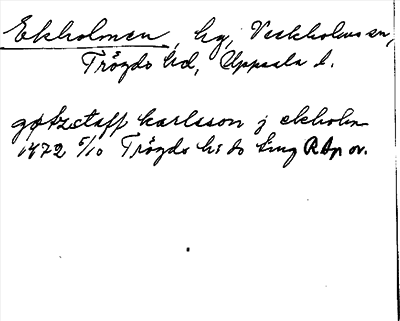 Ekholmen, hg, Veckholms sn,
Trögds hd, Uppsala l.
götzstaff karlsson j ekholm
1472 5/10 Trögds hs do Eng RAp or.